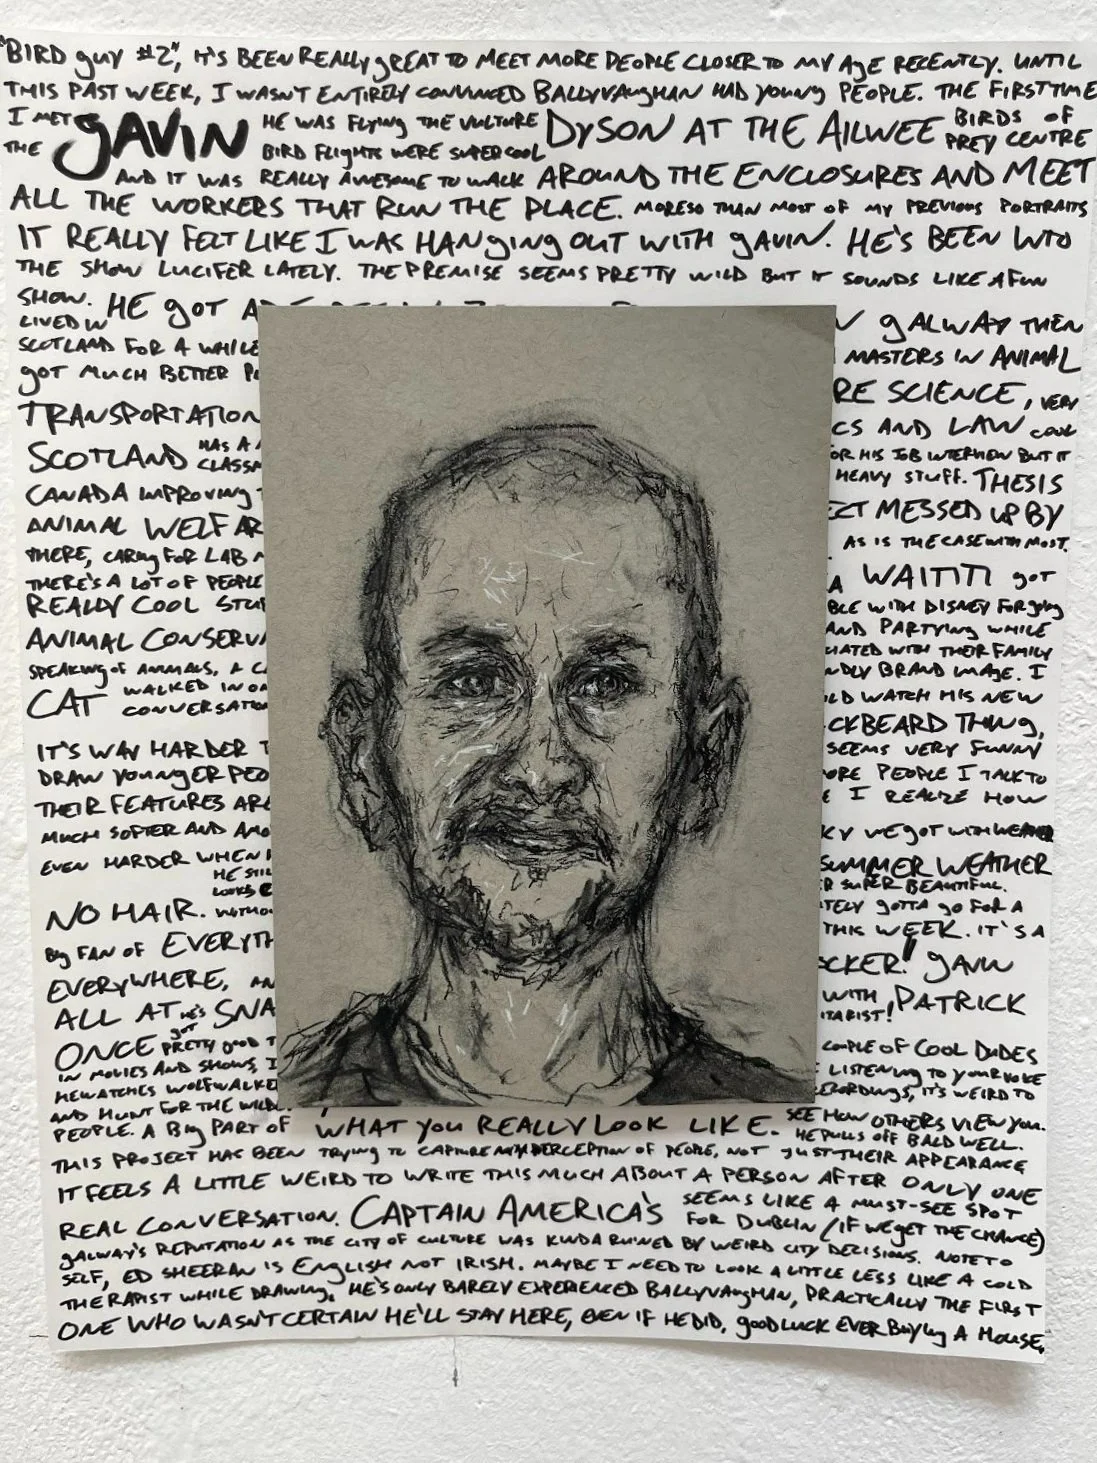 "BIRD guy #2", IT'S BEEN REALLY gREAT TO MEET MORE PEOPLE CLOSER TO MY AgE RECENTLY. UNTIL
THIS PAST WEEK, I WASN'T ENTIRELY CONVINCED BALLYVAUGHAN HAD YOUNG PEOPLE. THE FIRST TIME
I MET THE gAVIN HE WAS FLYING THE VULTURE DYSON AT THE AILWEE BIRDS OF PREY CENTRE
BIRD FLIGHTS WERE SUPER COOL
AND IT WAS REALLY AWESOME TO WALK AROUND THE ENCLOSURES AND MEET
ALL THE WORKERS THAT RUN THE PLACE. MORESO THAN MOST OF MY PREVIOUS PORTRAITS
IT REALLY FELT LIKE I WAS HANGING OUT WITH gAVIN. HE'S BEEN INTO
THE SHOW LUCIFER LATELY. THE PREMISE SEEMS PRETTY WILD BUT IT SOUNDS LIKE A FUN
SHOW. HE GOT A
LIVED IN
SCOTLAND FOR A WHILE
GOT MUCH BETTER
TRANSPORTATION
SCOTLAND HAS A
CLASSN
CANADA IMPROVING
ANIMAL WELFAR
THERE, CARING FOR LAB
THERE'S A LOT OF PEOPLE
REALLY COOL STUF
ANIMAL CONSERVA
SPEAKING OF ANIMALS, A CA
CAT WALKED IN ON
CONVERSATIO
IT'S WAY HARDER T
DRAW YOUNGER PEO
THEIR FEATURES ARE
MUCH SOFTER AND AMO
EVEN HARDER WHEN
HE STIL
LOOKS
NO HAIR. WITHOU
BIG FAN OF EVERYTH
EVERYWHERE, AN
ALL AT HE'S SNA
ONCE GOT PRETTY GOOD T
IN MOVIES AND SHOWS, I
HE WATCHES WOLFWALKE
AND HUNT FOR THE WILDE
PEOPLE. A BIG PART OF
GALWAY THEN
MASTERS IN ANIMAL
RE SCIENCE, VERY
CS AND LAW COOL
OR HIS JOB INTERVIEW BUT IT
HEAVY STUFF. THESIS
ECT MESSED UP BY
AS IS THE CASE WITH MOST.
A WAITITI GOT
BLE WITH DISNEY FOR GOING
AND PARTYING WHILE
IATED WITH THEIR FAMILY
NDLY BRAND IMAGE. I
LD WATCH HIS NEW
CKBEARD THING,
SEEMS VERY FUNNY
ORE PEOPLE I TALK TO
E I REALIZE HOW
KY WE GOT WITH WEATHER
SUMMER WEATHER
R SUPER BEAUTIFUL.
TELY GOTTA GO FOR A
THIS WEEK. IT'S A
CKER! GAVIN
WITH PATRICK
ITARIST!
COUPLE OF COOL DUDES
LISTENING TO YOUR VOICE
RECORDINGS, IT'S WEIRD TO
WHAT YOU REALLY LOOK LIKE. SEE HOW OTHERS VIEW YOU.
HE PULLS OFF BALD WELL.
THIS PROJECT HAS BEEN TRYING TO CAPTURE MY PERCEPTION OF PEOPLE, NOT JUST THEIR APPEARANCE
IT FEELS A LITTLE WEIRD TO WRITE THIS MUCH ABOUT A PERSON AFTER ONLY ONE
REAL CONVERSATION. CAPTAIN AMERICA'S SEEMS LIKE A MUST-SEE SPOT
FOR DUBLIN (IF WE GET THE CHANCE)
GALWAY'S REPUTATION AS THE CITY OF CULTURE WAS KINDA RUINED BY WEIRD CITY DECISIONS. NOTE TO
SELF, ED SHEERAN IS ENGLISH NOT IRISH. MAYBE I NEED TO LOOK A LITTLE LESS LIKE A COLD
THERAPIST WHILE DRAWING. HE'S ONLY BARELY EXPERIENCED BALLYVAUGHAN, PRACTICALLY THE FIRST
ONE WHO WASN'T CERTAIN HE'LL STAY HERE, EVEN IF HE DID, GOOD LUCK EVER BUYING A HOUSE.